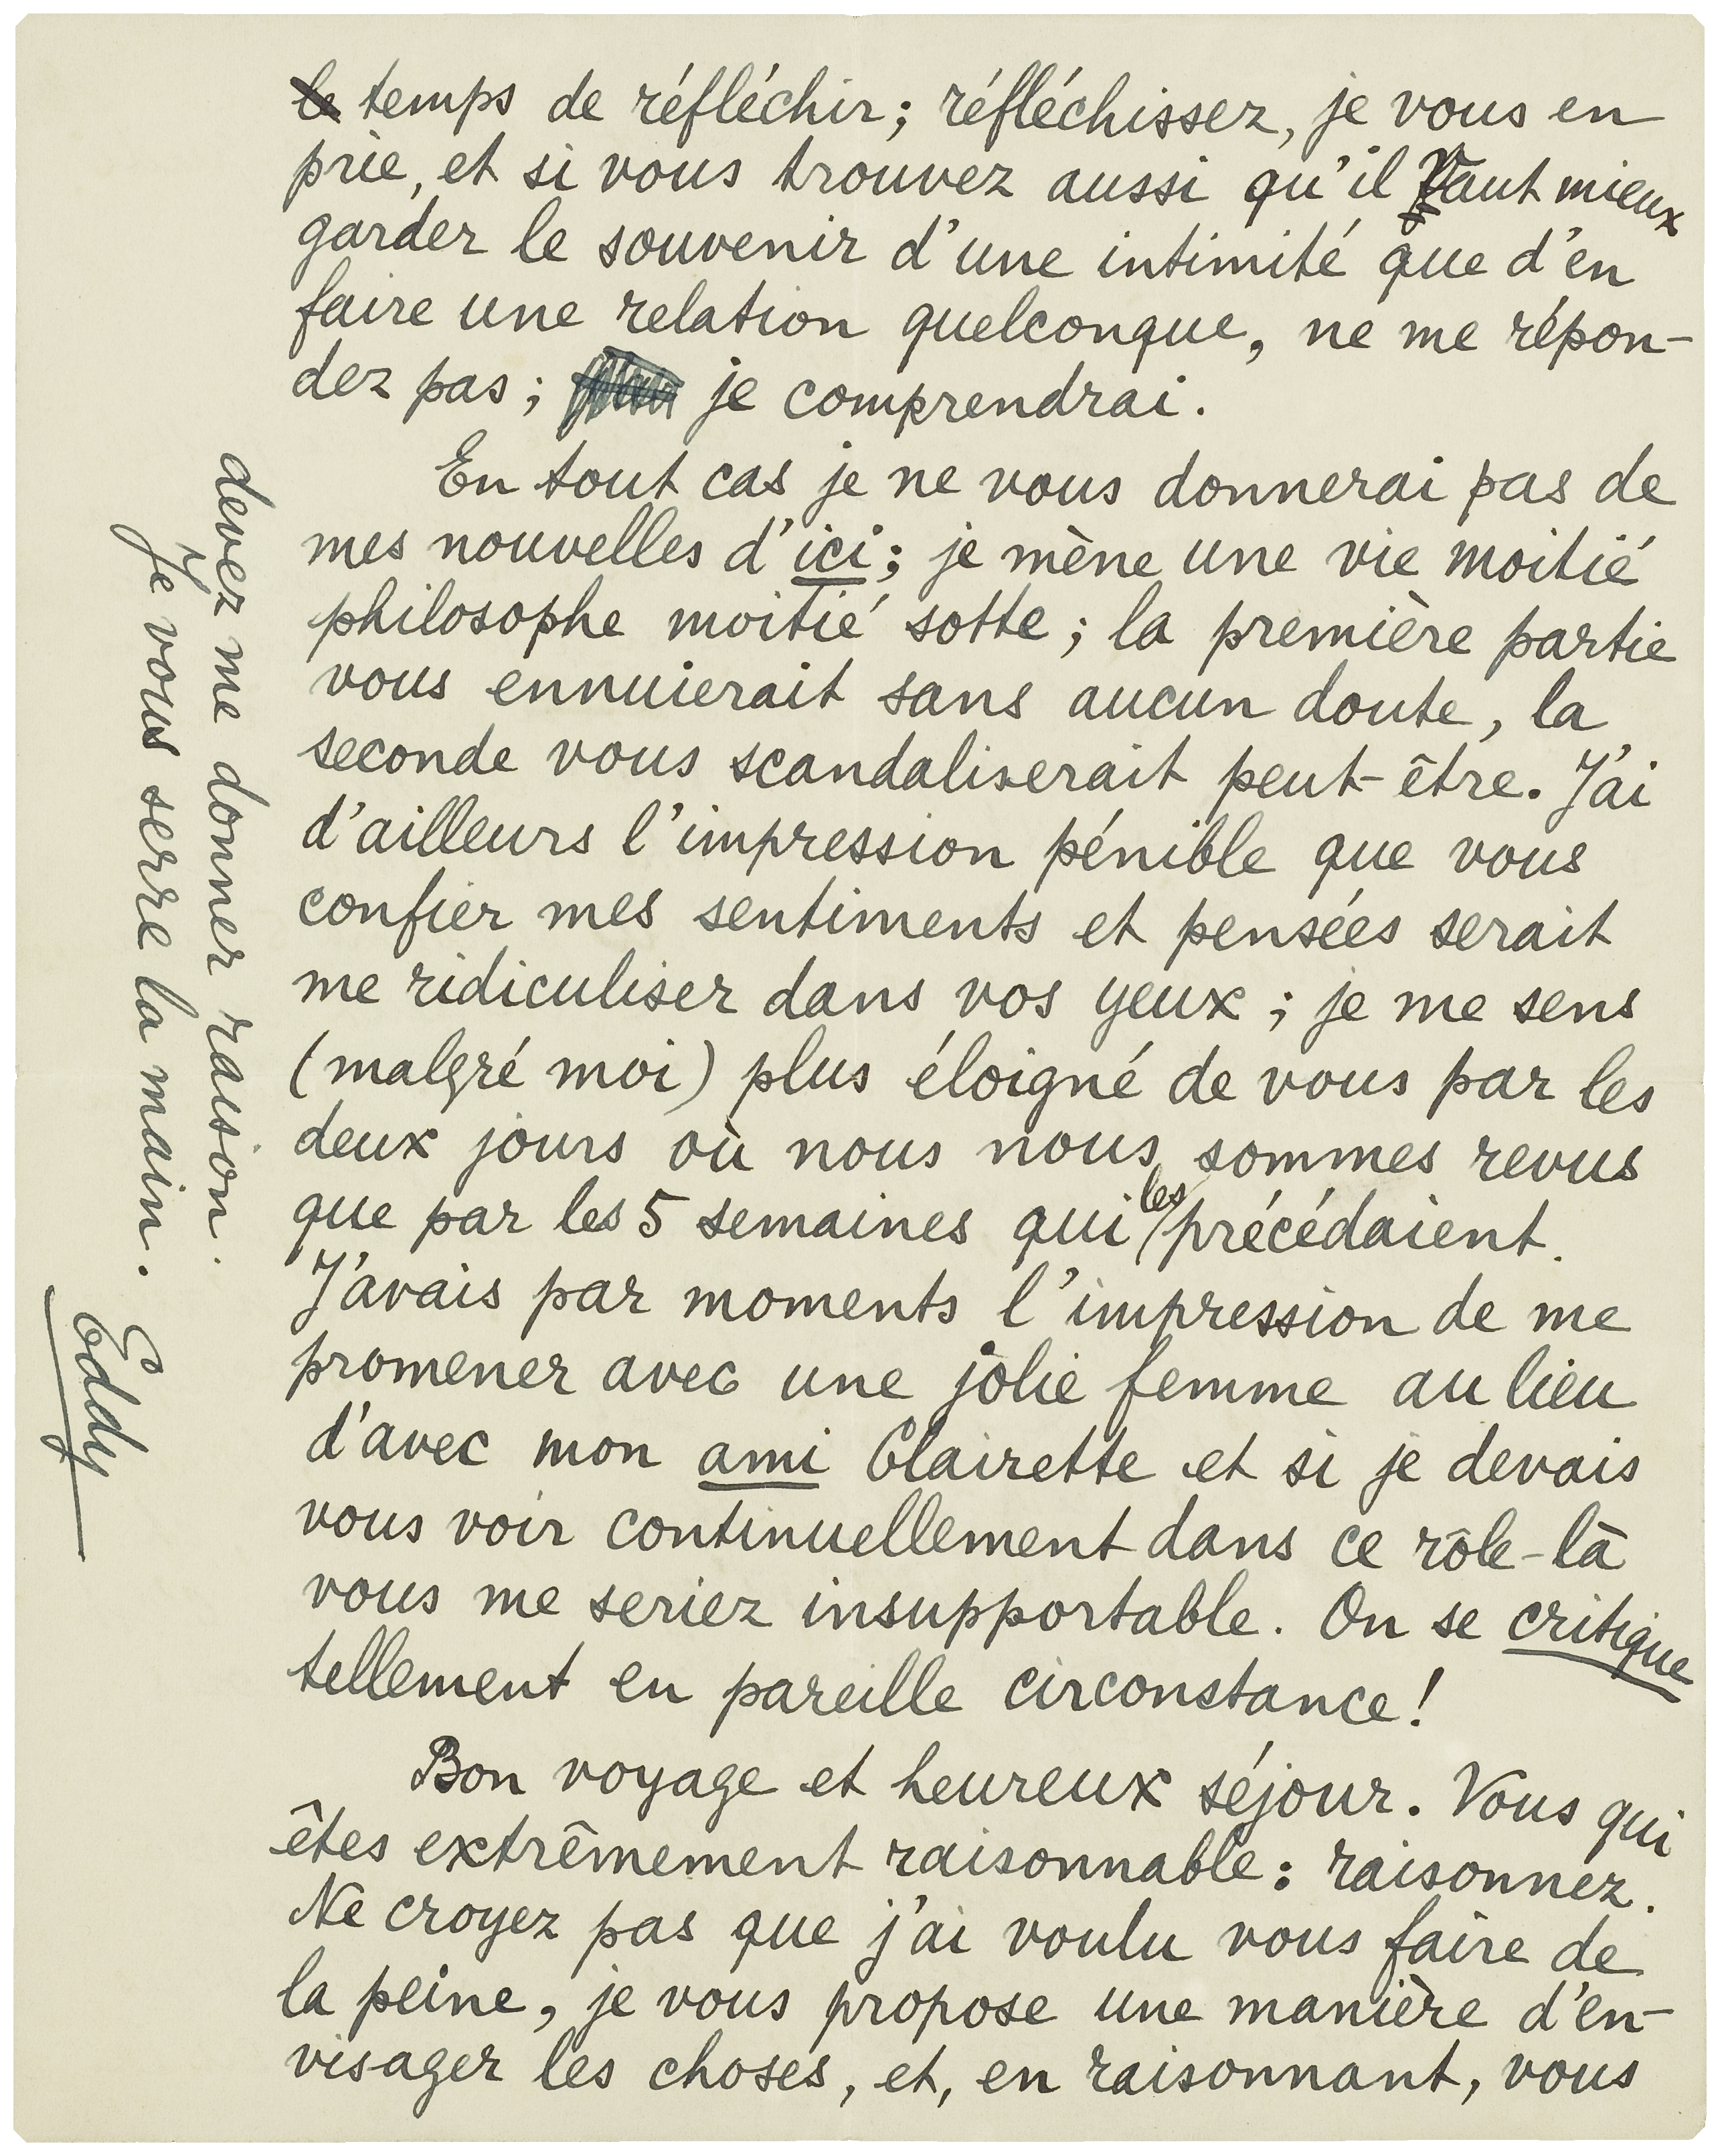 le temps de réfléchir; réfléchissez, je vous en
prie, et si vous trouvez aussi qu'il vaut mieux
garder le souvenir d'une intimité que d'en
faire une relation quelconque, ne me répon-
dez pas; je comprendrai.
En tout cas je ne vous donnerai pas de
mes nouvelles d'ici; je mène une vie moitié
philosophe moitié sotte; la première partie
vous ennuierait sans aucun doute, la
seconde vous scandaliserait peut-être. J'ai
d'ailleurs l'impression pénible que vous
confier mes sentiments et pensées serait
me ridiculiser dans vos yeux; je me sens
(malgré moi) plus éloigné de vous par les
deux jours où nous nous sommes revus
que par les 5 semaines qui les précédaient.
J'avais par moments l'impression de me
promener avec une jolie femme au lieu
d'avec mon ami Clairette et si je devais
vous voir continuellement dans ce rôle-là
vous me seriez insupportable. On se critique
tellement en pareille circonstance!
Bon voyage et heureux séjour. Vous qui
êtes extrêmement raisonnable: raisonnez.
Ne croyez pas que j'ai voulu vous faire de
la peine, je vous propose une manière d'en-
visager les choses, et, en raisonnant, vous
devez me donner raison.
Je vous serre la main.
Eddy